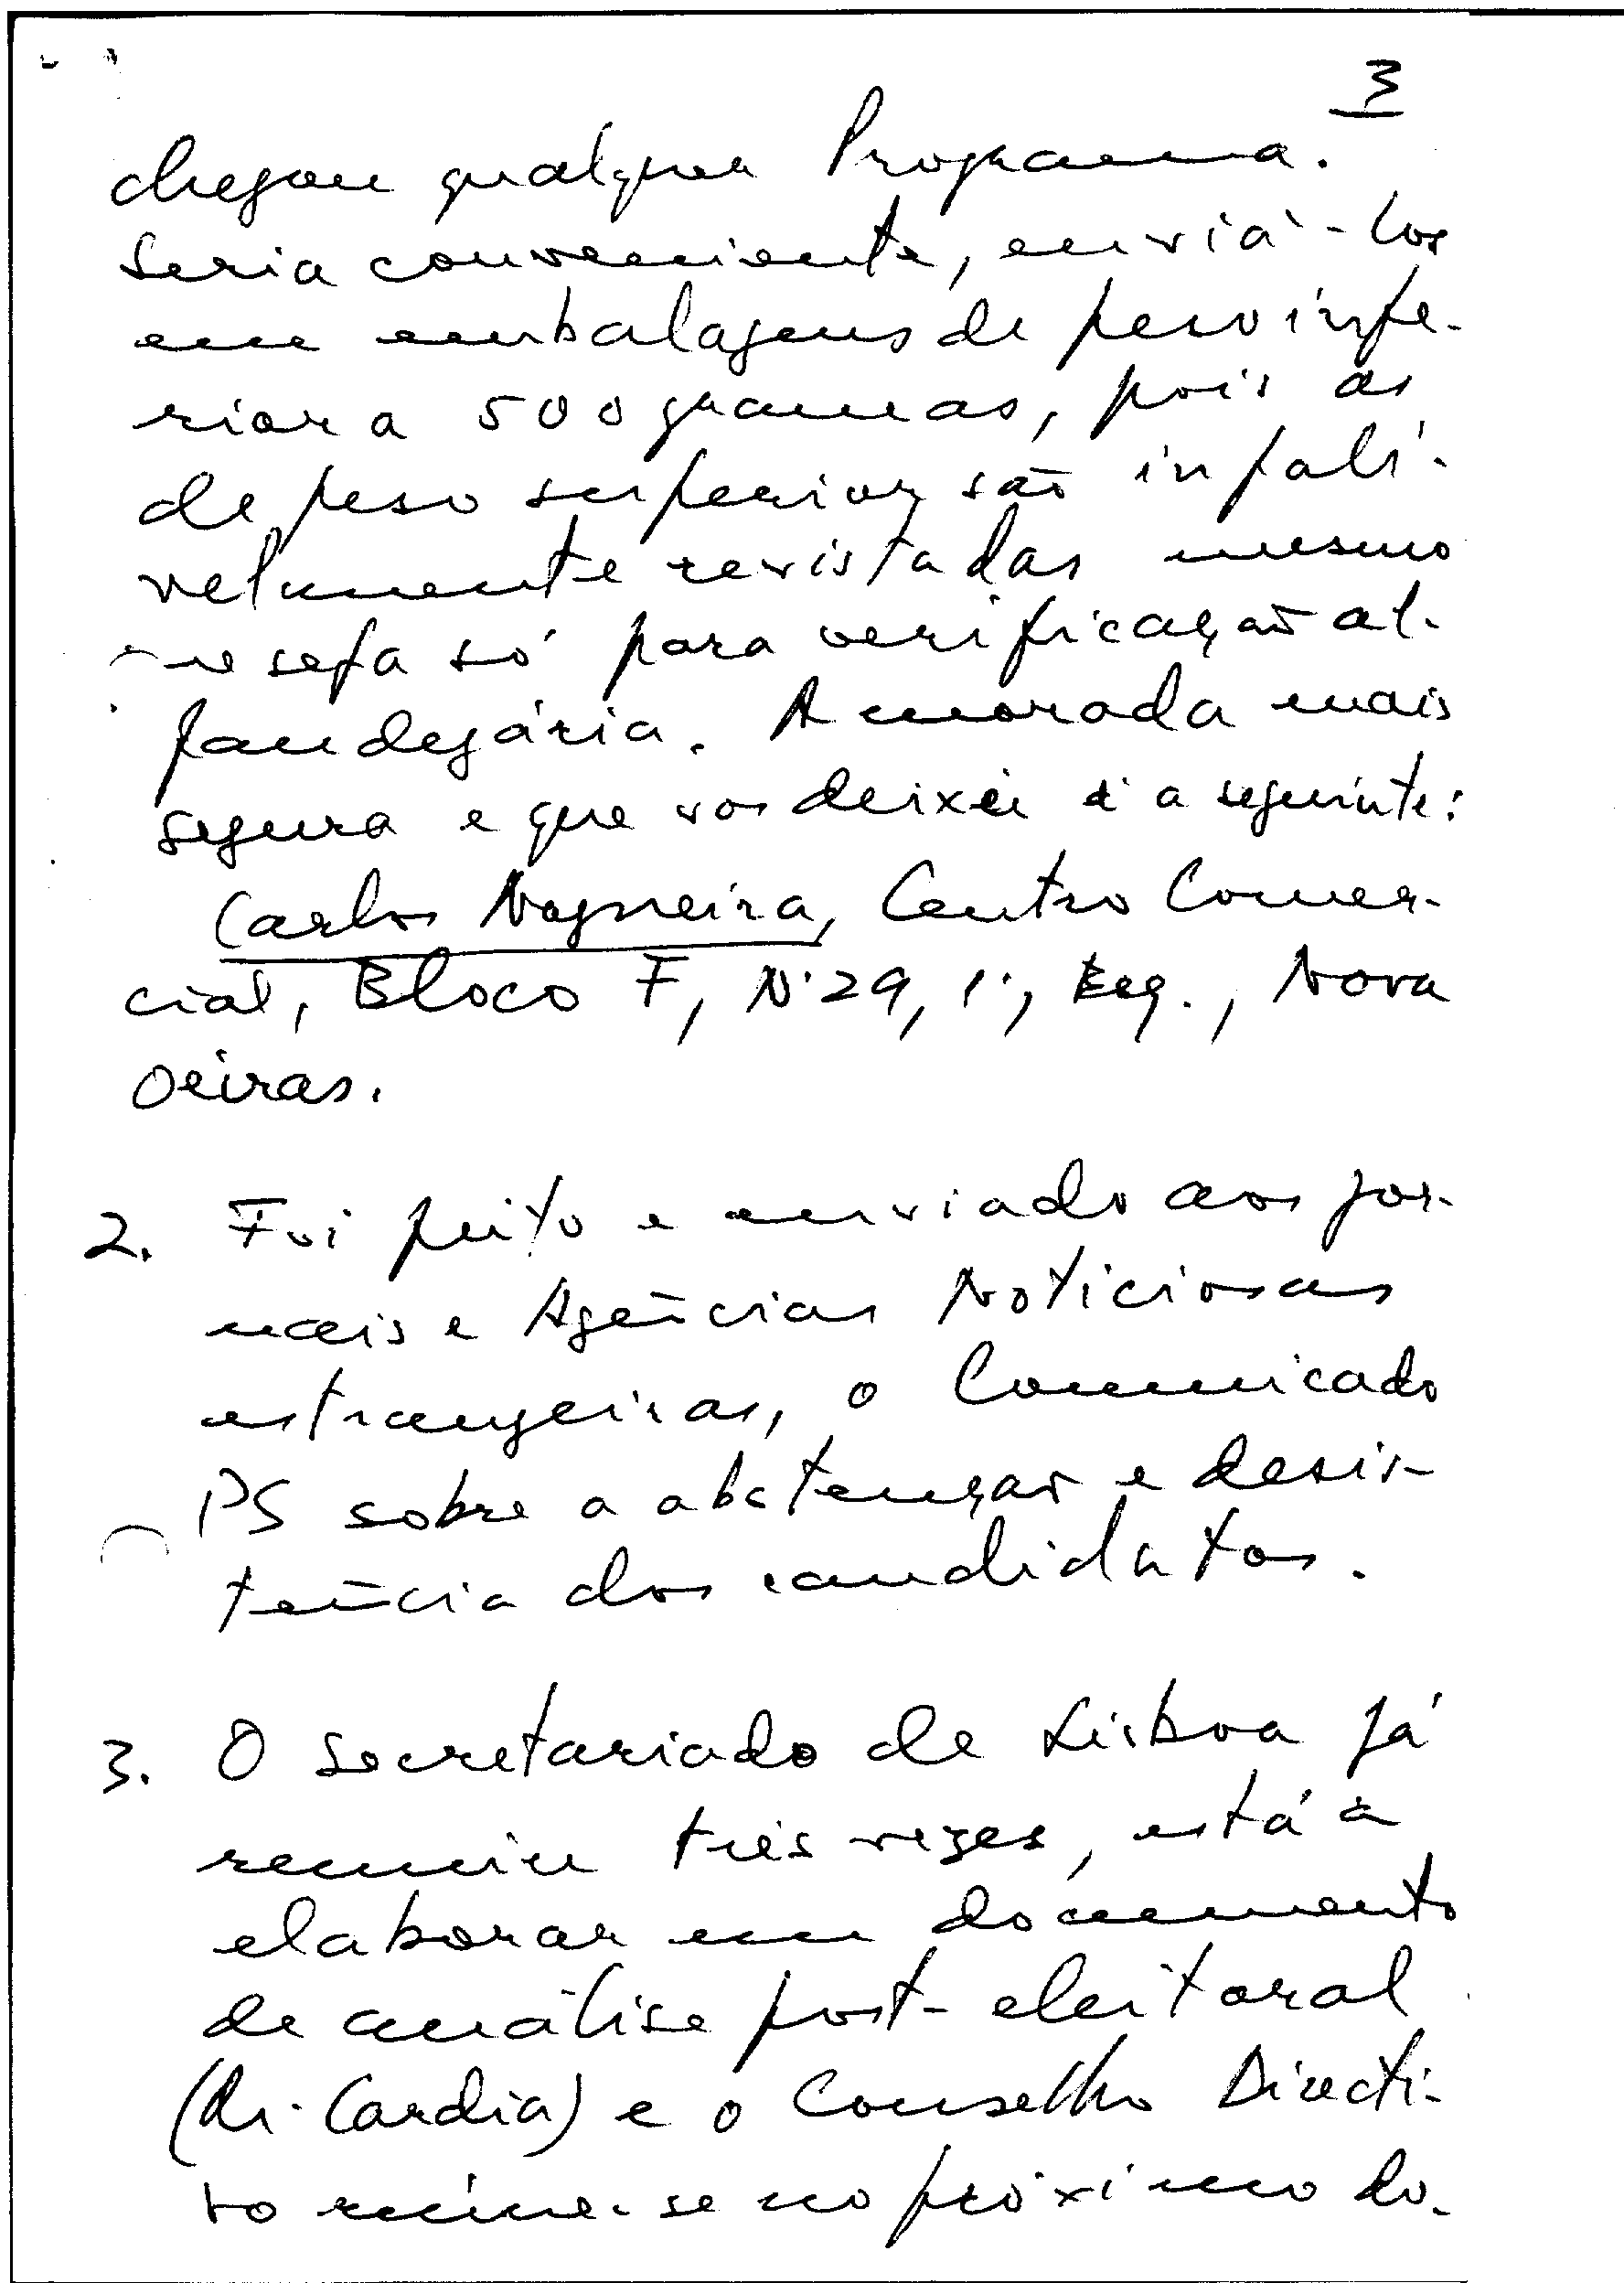 3
chegou qualquer Programa.
Seria conveniente, enviá-los
em embalagens de peso infe-
rior a 500 gramas, pois as
de peso superior são infalí-
velmente revistadas mesmo
se seja só para verificação al-
fandegária. A morada mais
segura e que vos deixei é a seguinte:
Carlos Nogueira, Centro Comer-
cial, Bloco F, Nº 29, 1º, Esq., Nova
Oeiras.
2. Foi feito e enviado aos jor-
nais e Agências Noticiosas
estrangeiras, o Comunicado
PS sobre a abstenção e desis-
tência dos candidatos.
3. O secretariado de Lisboa já
reuniu três vezes, está a
elaborar um documento
de análise post-eleitoral
(Dr. Cardia) e o Conselho Directi-
vo reúne-se no próximo do-